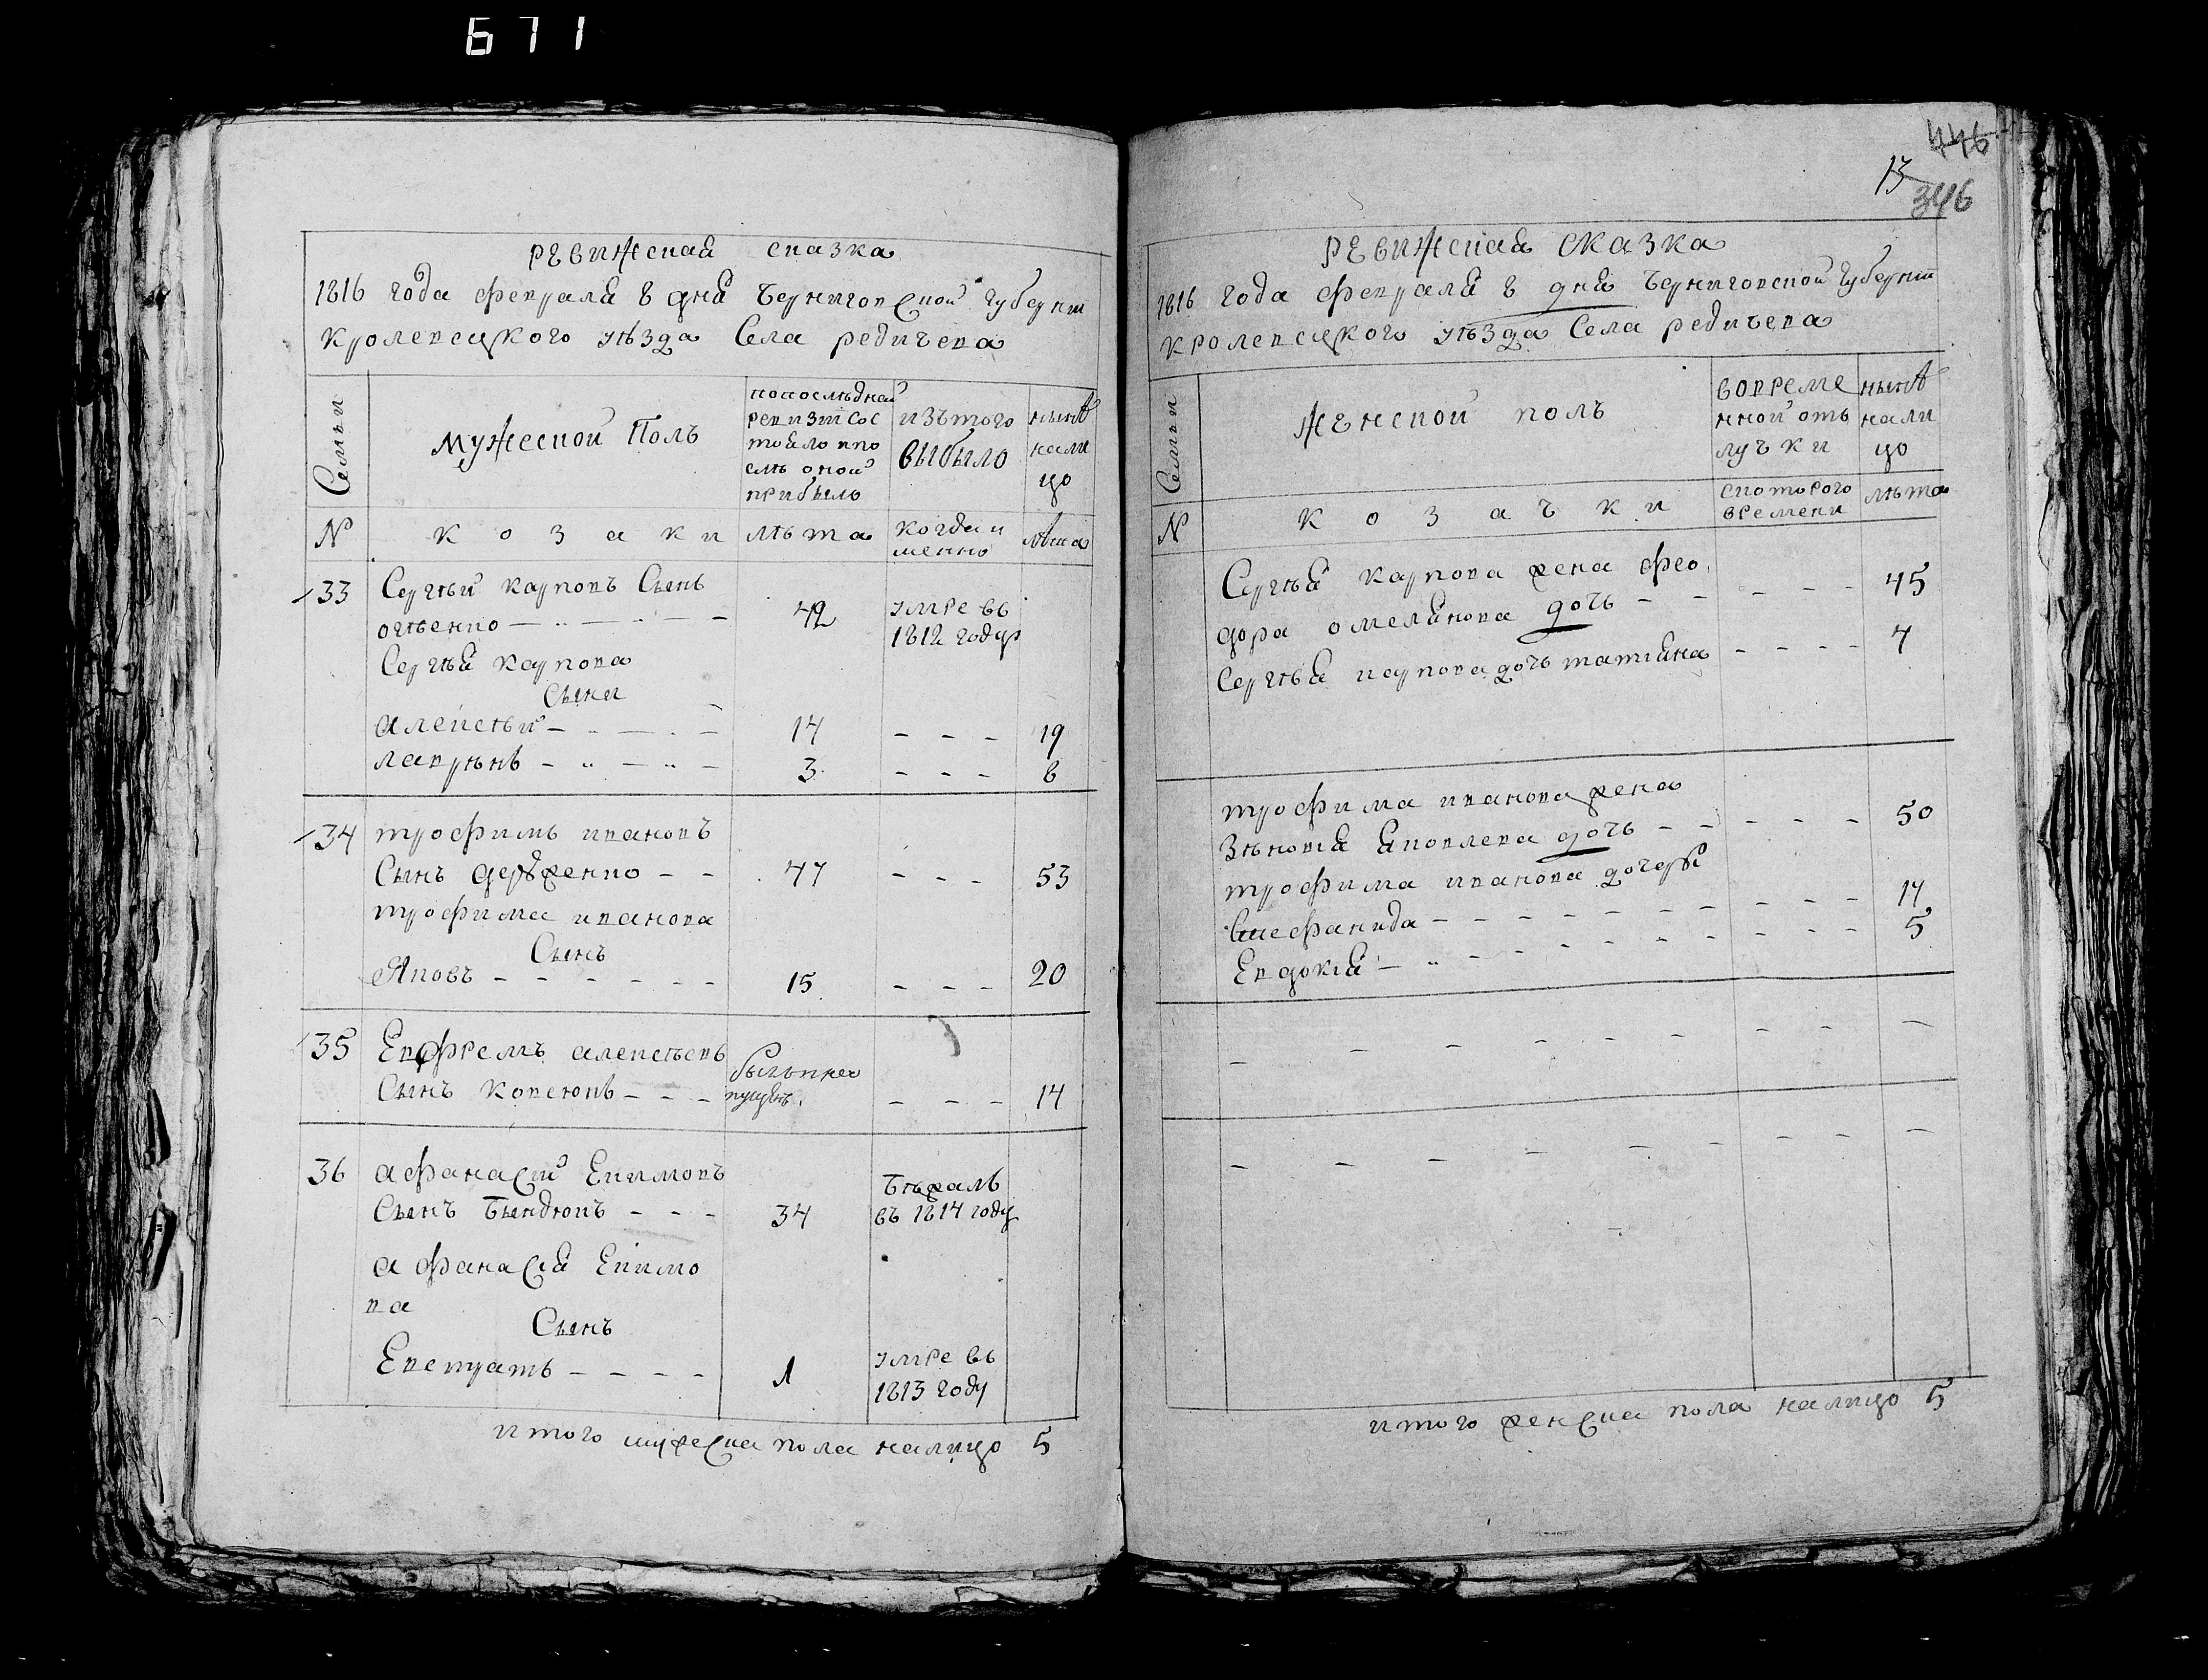 671
ревижская сказка
1816 года февраля 8 дня Черниговской губернии
кролевецкого уѣзда Села редичева
Семьи
мужеской Полъ
попослѣдней ревизии состояло и после оной прибыло
изътого выбыло
нынѣ налицо
N
козаки
лѣта
когда именно
лѣта
33 Сергѣй карповъ Сынъ
огѣенко 42 умре въ 1812 году
Сергѣя карпова
Сыны
алексѣй 14 19
лаврѣнъ 3 8
34 трофимъ ивановъ
Сынъ 47 53
трофима иванова
Сынъ
Яковъ 15 20
35 Евфремъ алексѣевъ
Сынъ былъ пропущенъ 14
36 афанасий Екимовъ
Сынъ 34 бѣжалъ въ 1814 году
афанасия Екимо
ва
Сынъ
Евстратъ 1 умре въ 1813 году
итого мужеска пола налицо 5
446
13
346
ревижская сказка
1816 года февраля 8 дня Черниговской губернии
кролевецкого уѣзда Села редичева
Семьи
женской полъ
вовременной отлучки
нынѣ налицо
N
козачки
скоторого времени
лѣта
Сергѣя карпова жена фео
дора омелянова дочь 45
Сергѣя карпова дочь татияна 4
трофима иванова жена
Зѣновия яковлева дочь 50
трофима иванова дочеры
Стефанида 14
Евдокия 5
итого женска пола налицо 5